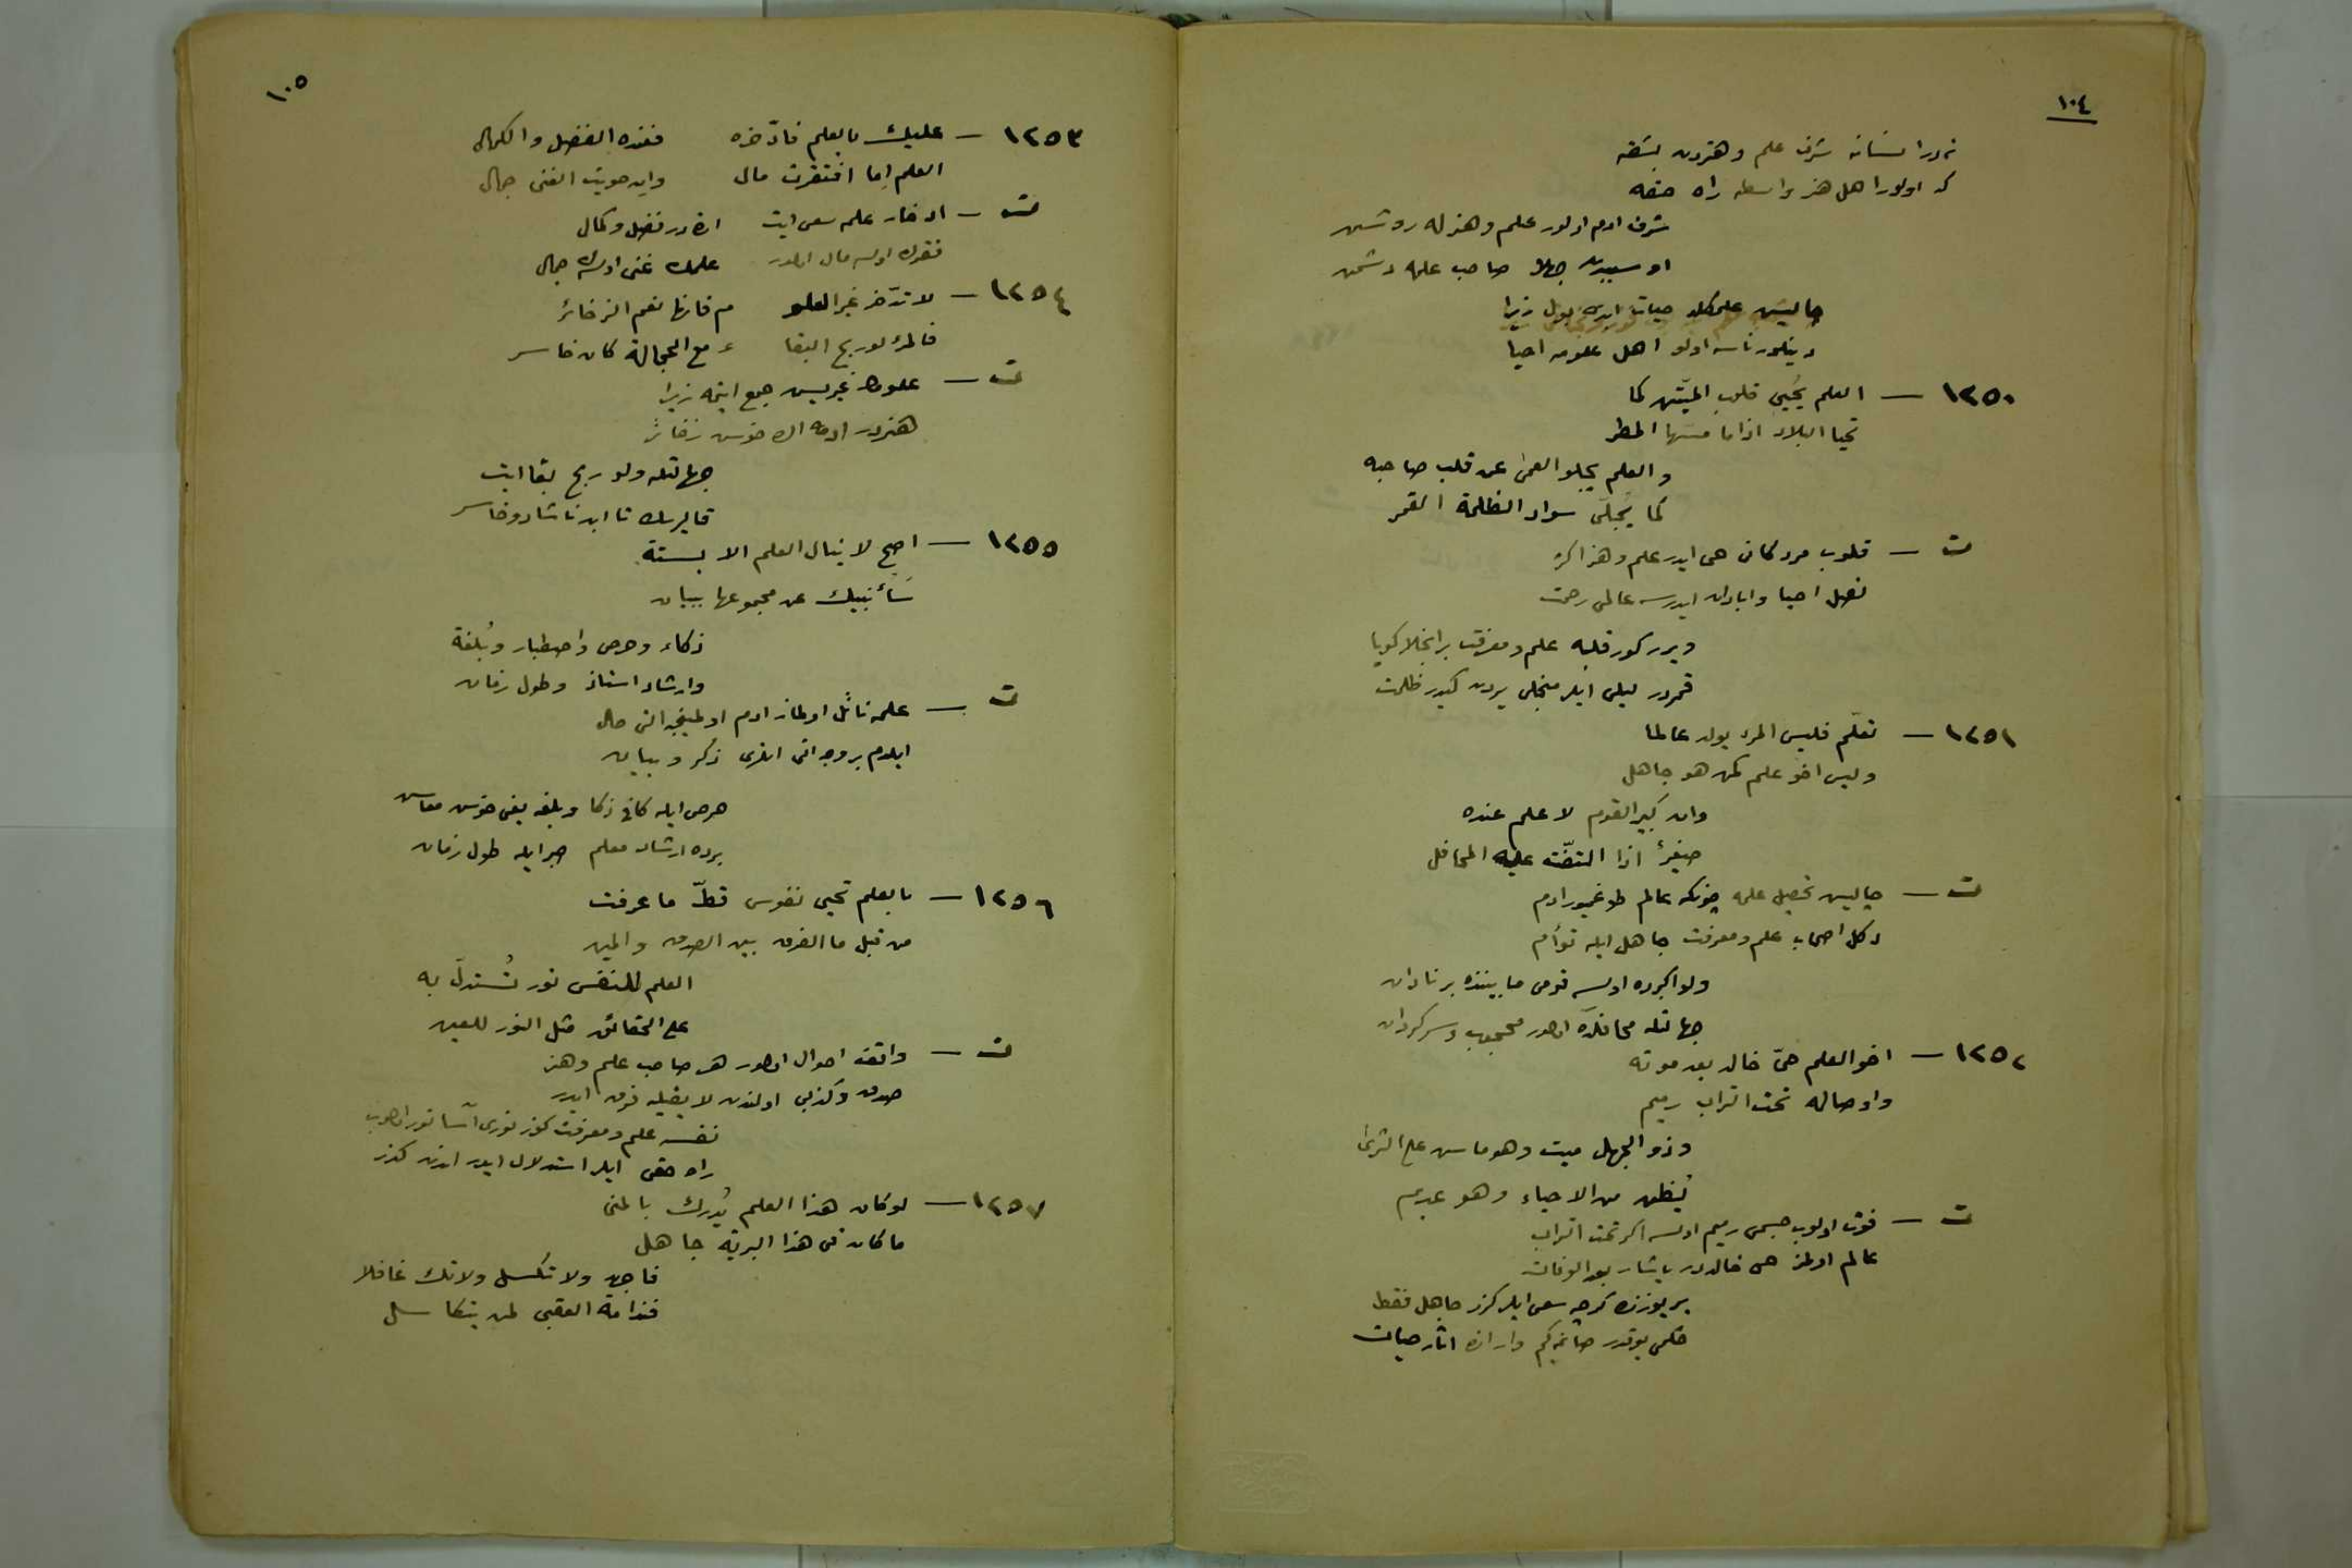 ١٠٤
شرف علم وهنردن بشقه
كه اولور اهل هنر واسطه راه حقه
شرف ادم اولور علم وهنرله روشن
او سببدن جهلا صاحب علمه دشمن
چاليش علمكله حيات ابدى بول زيرا
دينلور ناسه اولو اهل علومه احيا
١٢٥٠ — العلم يُحيي قلوب الميّتين كما
تحيا البلاد اذا ما مسّها المطر
والعلم يجلو العمى عن قلب صاحبه
كما يُجلّى سواد الظلمة القمر
ت — قلوب مردكانى حى ايدر علم وهنر اكر
نصل احيا وابادان ايدرسه عالمى رحمت
ويرر كور قلبه علم ومعرفت بر انجلا كويا
قمردر ليلى ايلر منجلى يردن كيدر ظلمت
١٢٥١ — تعلّم فليس المرء يولد عالما
وليس اخو علم كمن هو جاهل
وان كبير القوم لا علم عنده
صغيرٌ اذا التفّت عليه المحافل
ت — چاليش تحصيل علمه چونكه عالم طوغميور ادم
دكل اصحاب علم ومعرفت جاهل ايله توأم
ولو اكبرده اولسه قومى مابيننده بر نادان
جهالتله محافلده اولور محجوب وسركردان
١٢٥٢ — اخو العلم حىّ خالد بعد موته
واوصاله تحت التراب رميم
وذو الجهل ميت وهو ماش على الثرى
يُظن من الاحياء وهو عديم
ت — فوت اولوب جسمى رميم اولسه اكر تحت التراب
عالم اولمز حى خالددر ياشار بعد الوفات
ير يوزنده كرچه سعى ايلر كزر جاهل فقط
حكمى يوقدر وار انده اثار حيات
١٠٥
١٢٥٣ — عليك بالعلم فادّخره فعنده الفضل والكمال
العلم إما افتقرت مال وان حويت الغنى جمال
ت — ادخار علمه سعى ايت انده در فضل وكمال
فقرك اولسه مال اولور علمك غنى اولسه‌ك جمال
١٢٥٤ — لا تدّخر غير العلو م فانها نعم الذخائر
فالمرء لو ربح البقا ء مع الجهالة كان خاسر
ت — علومك غيريسن جمع ايتمه زيرا
هنردر ادمه اك خوش ذخائر
جهالتله ولو ربح بقا ايت
قاليرسك تا ابد ناشاد وخاسر
١٢٥٥ — اصخ لا ينال العلم الا بستة
سأنبيك عن مجموعها ببيان
ذكاء وحرص واصطبار وبُلغة
وارشاد استاذ وطول زمان
ت — علمه نائل اولماز ادم اولمينجه التى حال
ايلدم بر وجه اتى انلرى ذكر وبيان
حرص ايله كافى ذكا وبلغه يعنى خوش معاش
برده ارشاد معلم صبر ايله طول زمان
١٢٥٦ — بالعلم تحيى نفوس قطّ ما عرفت
من قبل ما الفرق بين الصدق والمين
العلم للنفس نور تُستدلّ به
على الحقائق مثل النور للعين
ت — واقف احوال اولور هر صاحب علم وهنر
صدق وكذبى اولندن لايقيله فرق ايدر
نفسه علم ومعرفت كوز نورى اسا نور اولوب
راه حقى ايلر استدلال ايدر اندن كذر
١٢٥٧ — لو كان هذا العلم يُدرك بالمنى
ما كان فى هذا البرية جاهل
فاجهد ولا تكسل ولا تك غافلا
فندامة العقبى لمن يتكاسل